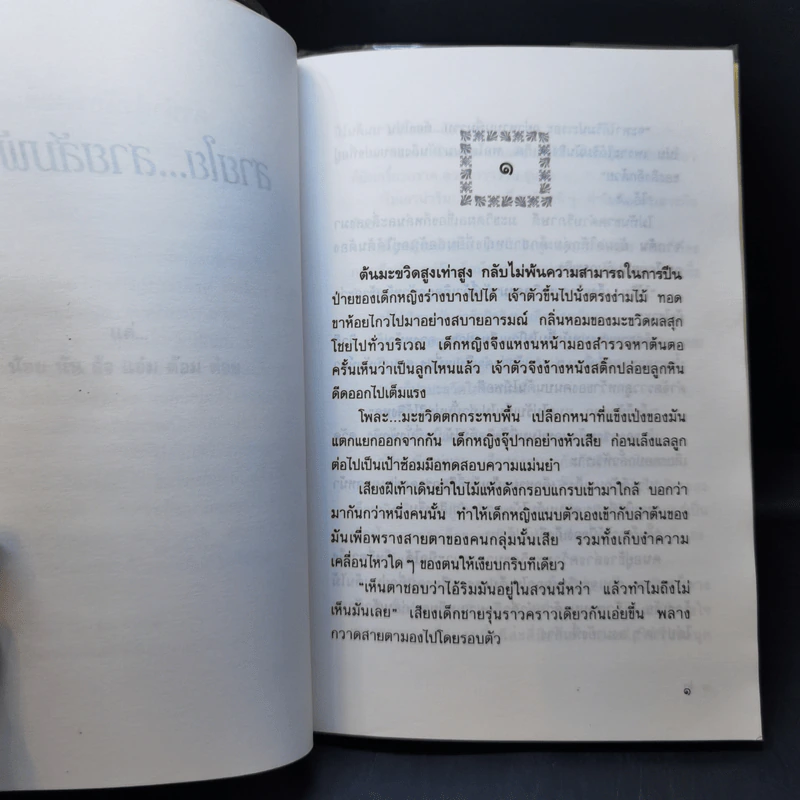 ๑
ต้นมะขวิดสูงเท่าสูง กลับไม่พ้นความสามารถในการปีน
ป่ายของเด็กหญิงร่างบางไปได้ เจ้าตัวขึ้นไปนั่งตรงง่ามไม้ ทอด
ขาห้อยไกวไปมาอย่างสบายอารมณ์ กลิ่นหอมของมะขวิดผลสุก
โชยไปทั่วบริเวณ เด็กหญิงจึงแหงนหน้ามองสำรวจหาต้นตอ
ครั้นเห็นว่าเป็นลูกไหนแล้ว เจ้าตัวจึงง้างหนังสติ๊กปล่อยลูกหิน
ดีดออกไปเต็มแรง
โพละ...มะขวิดตกกระทบพื้น เปลือกหนาที่แข็งเป่งของมัน
แตกแยกออกจากกัน เด็กหญิงจุ๊ปากอย่างหัวเสีย ก่อนเล็งแลลูก
ต่อไปเป็นเป้าซ้อมมือทดสอบความแม่นยำ
เสียงฝีเท้าเดินย่ำใบไม้แห้งดังกรอบแกรบเข้ามาใกล้ บอกว่า
มากันกว่าหนึ่งคนนั้น ทำให้เด็กหญิงแนบตัวเองเข้ากับลำต้นของ
มันเพื่อพรางสายตาของคนกลุ่มนั้นเสีย รวมทั้งเก็บงำความ
เคลื่อนไหวใด ๆ ของตนให้เงียบกริบทีเดียว
“เห็นตาชอบว่าไอ้ริมมันอยู่ในสวนนี่หว่า แล้วทำไมถึงไม่
เห็นมันเลย” เสียงเด็กชายรุ่นราวคราวเดียวกันเอ่ยขึ้น พลาง
กวาดสายตามองไปโดยรอบตัว
๑